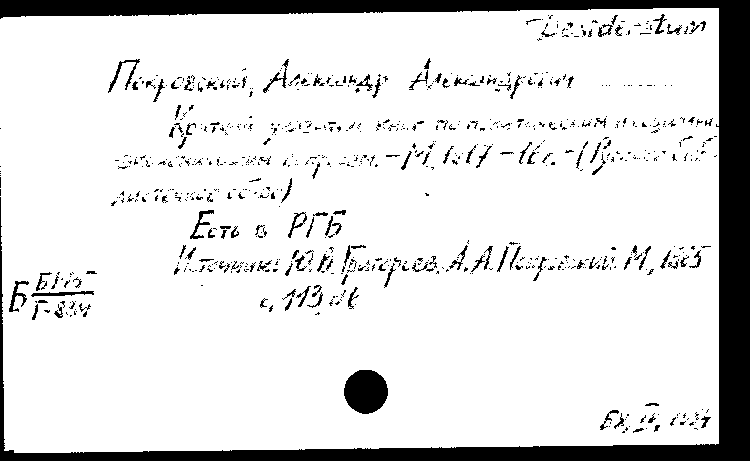 Desideratum
Покровский, Александр Александрович
Краткий указатель книг по политическим и социально-
-экономическим вопросам. – М., 1917 – 16 с. – (Русское биб-
лиотечное об-во)
Есть в РГБ
Источник: Ю.В. Григорьев, А.А. Покровский. М., 1965
Б
с. 113